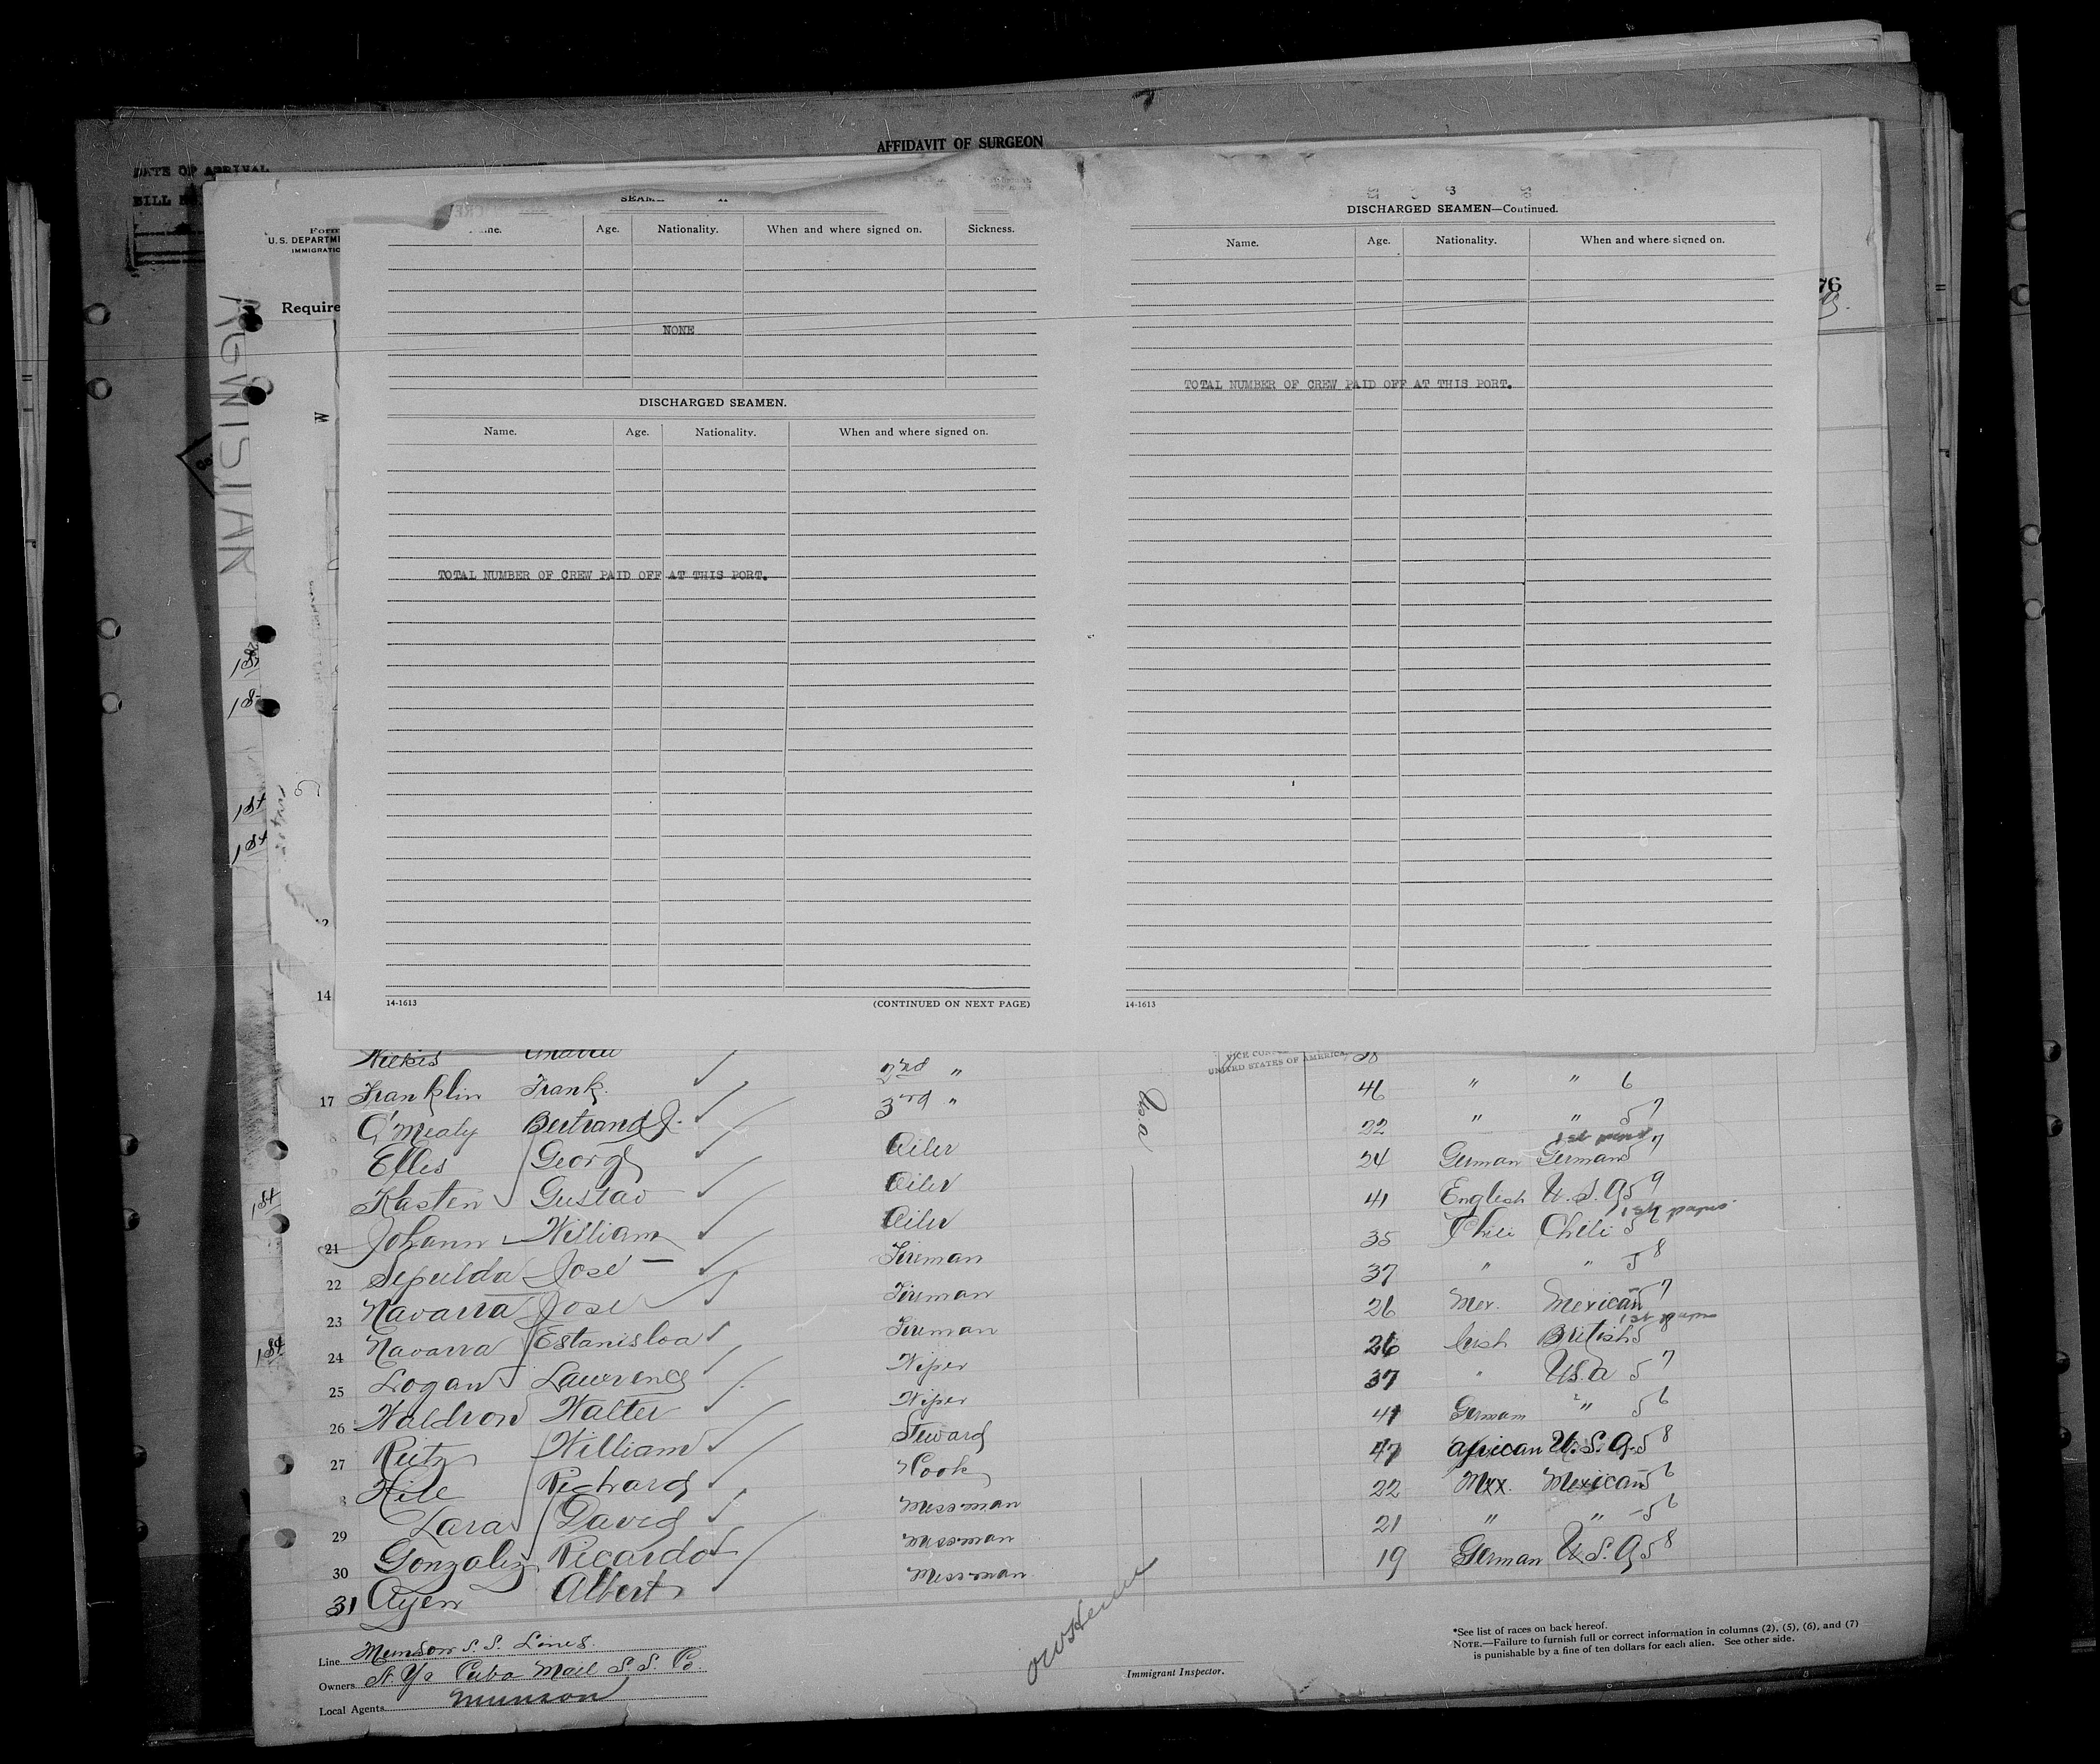 AFFIDAVIT OF SURGEON
DATE OF ARRIVAL
BILL
Form
U.S. DEPARTME
IMMIGRATIO
Require
76
AGWISTAR
W
Name. Age. Nationality. When and where signed on. Sickness.
NONE
DISCHARGED SEAMEN.
Name. Age. Nationality. When and where signed on.
TOTAL NUMBER OF CREW PAID OFF AT THIS PORT.
14-1613 (CONTINUED ON NEXT PAGE)
3
DISCHARGED SEAMEN—Continued.
Name. Age. Nationality. When and where signed on.
TOTAL NUMBER OF CREW PAID OFF AT THIS PORT.
14-1613
1st
1st
14
VICE CON
UNITED STATES OF AMERICA
2nd "
17 Franklin Frank. 3rd " 46 " " 6
O'Mealy Bertrand J. Oiler 22 " " 5 7
1st papers
Elles George Oiler 24 German German 5 7
1st Kasten Gustav Oiler 41 English U.S.A 5 9
1st papers
21 Johann William Fireman 35 Chili Chili 5 7
22 Sepulda José Fireman 37 " " 5 8
23 Navarra Jose Fireman 26 Mex. Mexican 5 7
1st papers
1st 24 Navarra Estanisloa Wiper 26 Irish British 5 8
25 Logan Lawrence Wiper 37 " U.S.A 5 7
26 Waldron Walter Steward 41 German " 5 6
27 Rutz William Cook 47 African U.S.A. 5 8
Hile Richard Messman 22 Mex. Mexican 5 6
29 Lara David Messman 21 " " 5 6
30 Gonzalez Ricardo Messman 19 German U.S.A 5 8
31 Ayen Albert
Line Munson S.S. Lines.
Owners N.Y. & Cuba Mail S.S. Co
Local Agents Munson
Immigrant Inspector.
*See list of races on back hereof.
NOTE.—Failure to furnish full or correct information in columns (2), (5), (6), and (7)
is punishable by a fine of ten dollars for each alien. See other side.